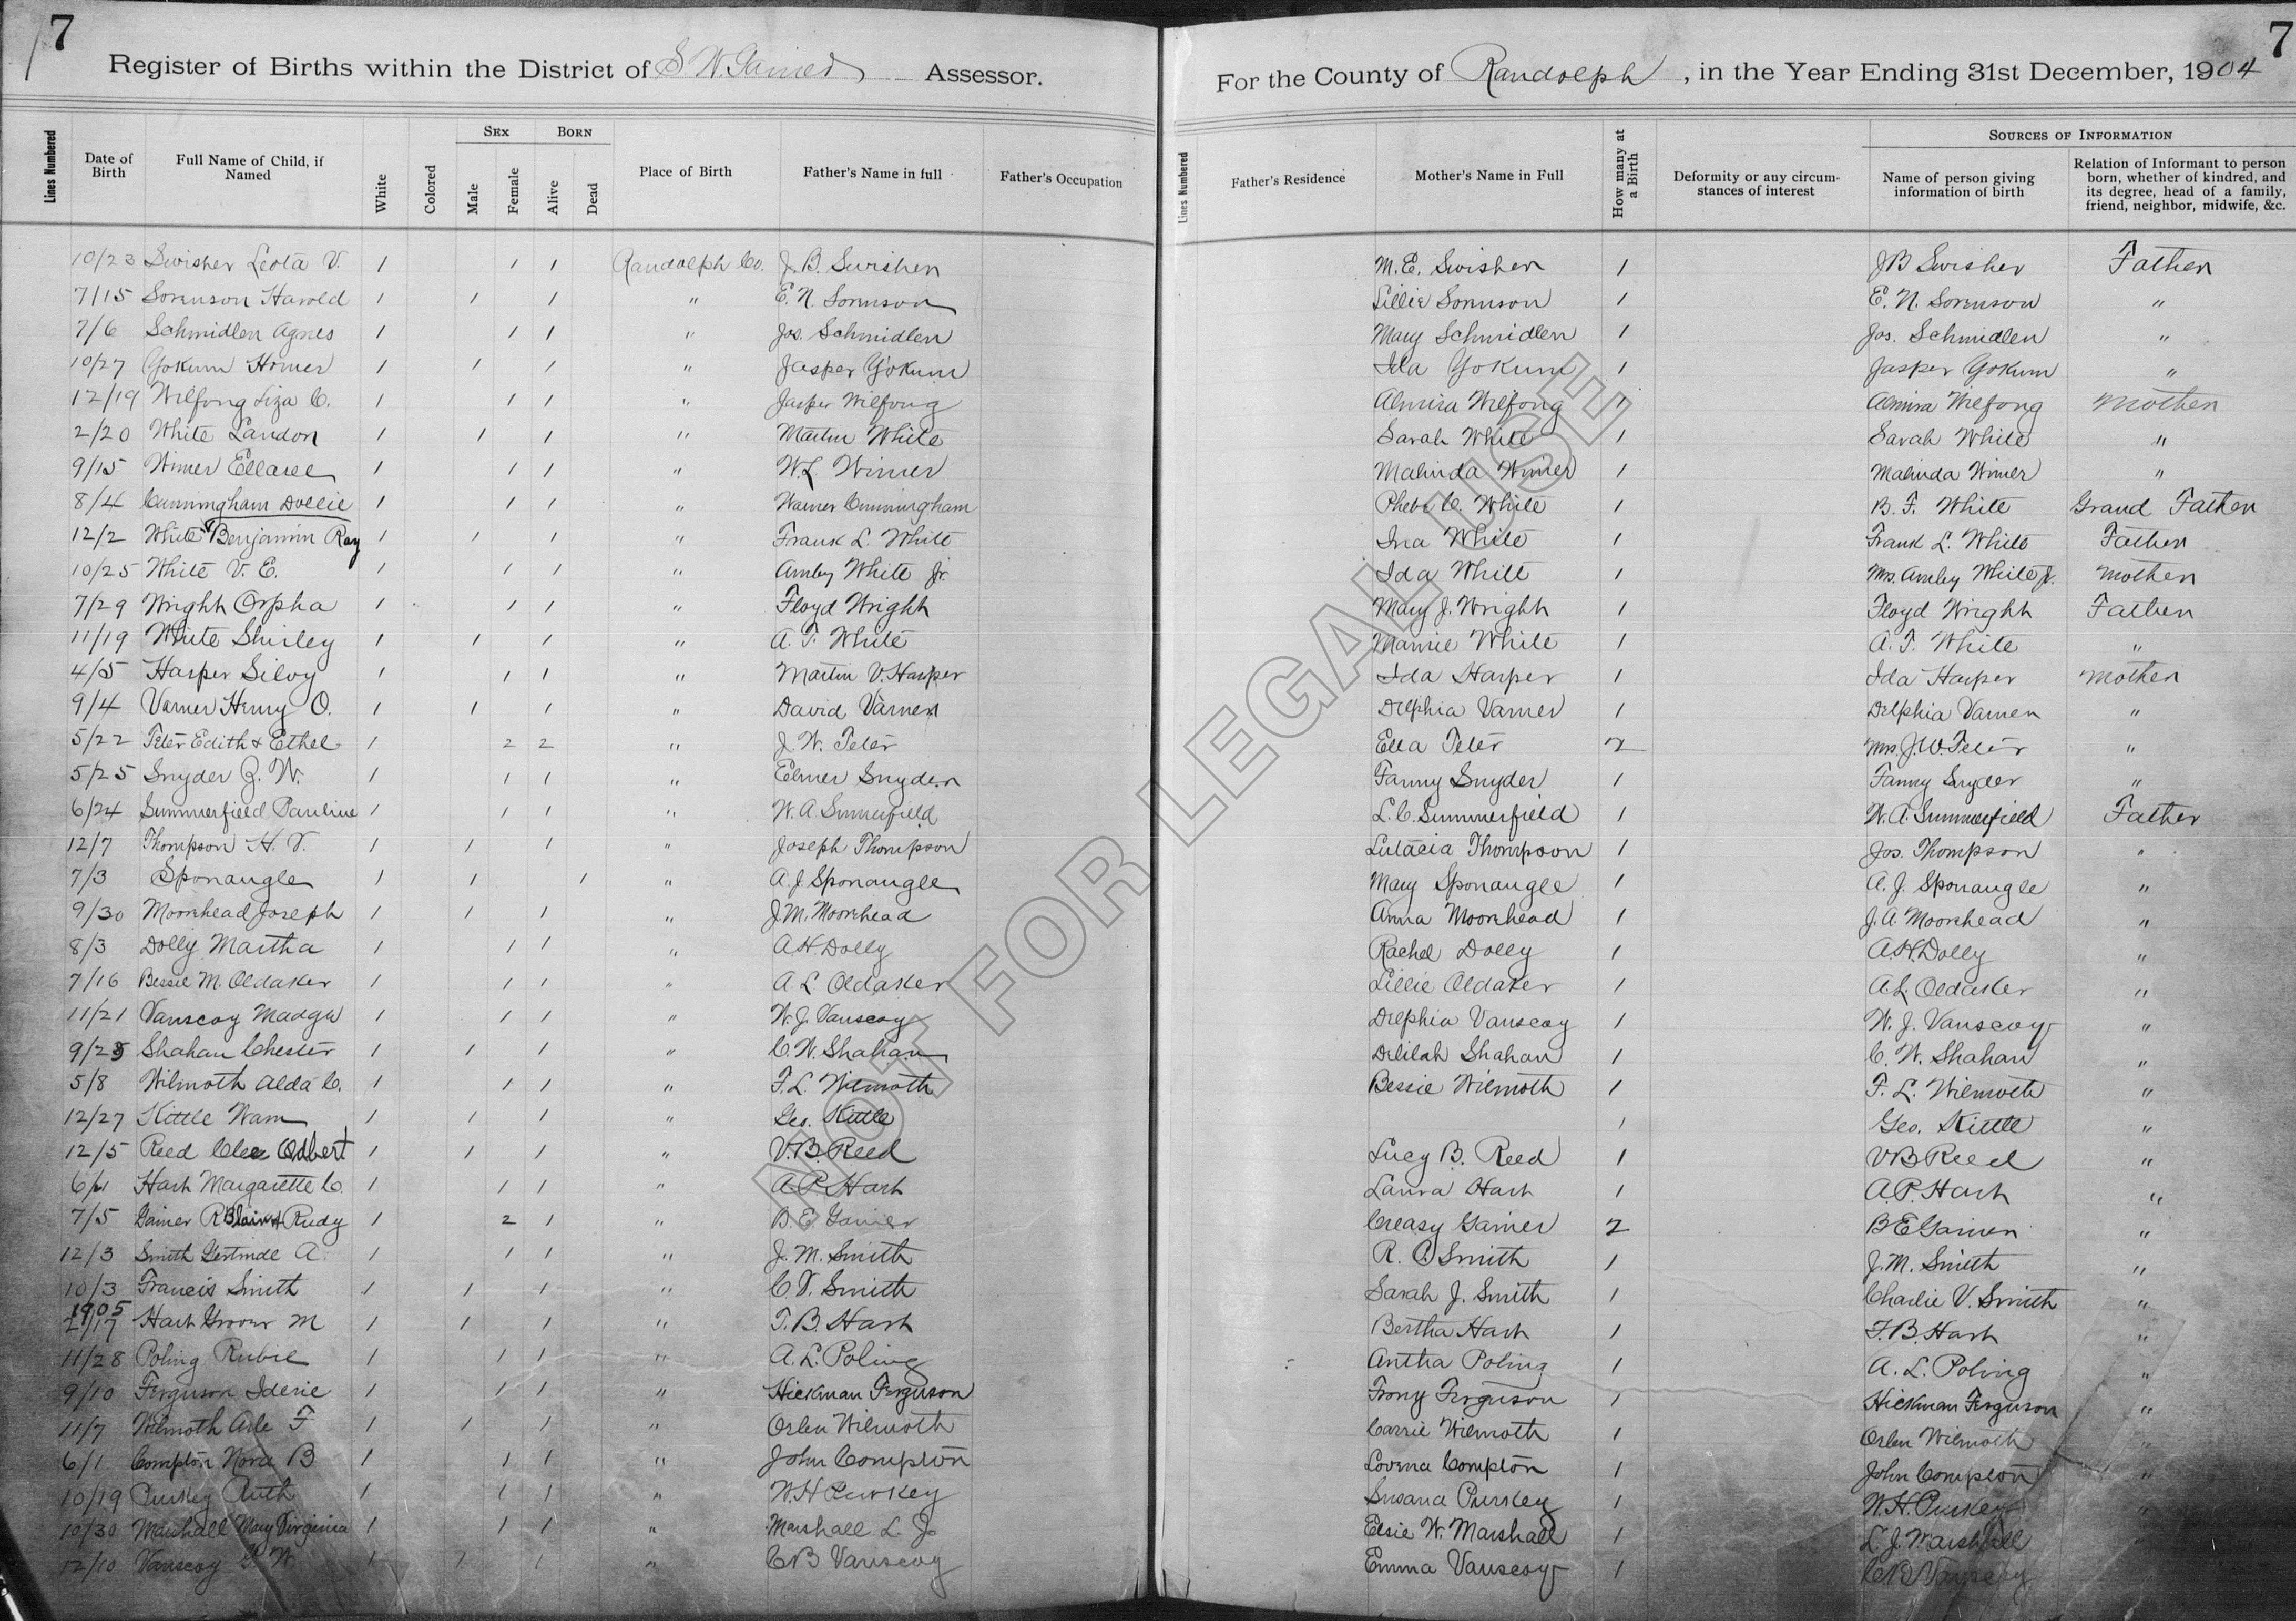 7
Register of Births within the District of S W Gainer Assessor.
For the County of Randolph, in the Year Ending 31st December, 1904
7
Lines Numbered
Date of Birth
Full Name of Child, if Named
White
Colored
SEX
Male
Female
BORN
Alive
Dead
Place of Birth
Father's Name in full
Father's Occupation
Lines Numbered
Father's Residence
Mother's Name in Full
How many at a Birth
Deformity or any circumstances of interest
SOURCES OF INFORMATION
Name of person giving information of birth
Relation of Informant to person born, whether of kindred, and its degree, head of a family, friend, neighbor, midwife, &c.
10/23 Swisher Leota V. 1 1 1 Randolph Co. J. B. Swisher M. E. Swisher 1 J B Swisher Father
7/15 Sorenson Harold 1 1 1 " E. N. Sorenson Lillie Sorenson 1 E. N. Sorenson "
7/6 Schmidlen Agnes 1 1 1 " Jos. Schmidlen Mary Schmidlen 1 Jos. Schmidlen "
10/27 Yokum Homer 1 1 1 " Jasper Yokum Ida Yokum 1 Jasper Yokum "
12/19 Wilfong Liza C. 1 1 1 " Jasper Wilfong Almira Wilfong 1 Almira Wilfong Mother
2/20 White Landon 1 1 1 " Martin White Sarah White 1 Sarah White "
9/15 Wimer 1 1 1 " W. L. Wimer Malinda Wimer 1 Malinda Wimer "
8/4 Cunningham Dollie 1 1 1 " Warner Cunningham Phebe C. White 1 B. F. White Grand Father
12/2 White Benjamin Ray 1 1 1 " Frank L. White Ina White 1 Frank L. White Father
10/25 White V. E. 1 1 1 " Amby White Jr. Ida White 1 Mrs. Amby White Jr. Mother
7/29 Wright Orpha 1 1 1 " Floyd Wright Mary J. Wright 1 Floyd Wright Father
11/19 White Shirley 1 1 1 " A. F. White Mamie White 1 A. F. White "
4/5 Harper Silvy 1 1 1 " Martin V. Harper Ida Harper 1 Ida Harper Mother
9/4 Varner Henry O. 1 1 1 " David Varner Delphia Varner 1 Delphia Varner "
5/22 Teter Edith & Ethel 1 2 2 " J. W. Teter Ella Teter 2 Mrs. J. W. Teter "
5/25 Snyder Z. W. 1 1 1 " Elmer Snyder Fanny Snyder 1 Fanny Snyder "
6/24 Summerfield Pauline 1 1 1 " W. A Summerfield L. C. Summerfield 1 W. A. Summerfield Father
12/7 Thompson H. V. 1 1 1 " Joseph Thompson Lutacia Thompson 1 Jos. Thompson "
7/3 Sponaugle 1 1 1 " A. J. Sponaugle Mary Sponaugle 1 A. J. Sponaugle "
9/30 Moorehead Joseph 1 1 1 " J. M. Moorehead Anna Moorehead 1 J. A. Moorehead "
8/3 Dolly Martha 1 1 1 " A H Dolly Rachel Dolly 1 A. H. Dolly "
7/16 Bessie M. Oldaker 1 1 1 " A L Oldaker Lillie Oldaker 1 A. L. Oldaker "
11/21 Vanscoy Madge 1 1 1 " W. J. Vanscoy Delphia Vanscoy 1 W. J. Vanscoy "
9/25 Shahan Chester 1 1 1 " C. W. Shahan Delilah Shahan 1 C. W. Shahan "
5/8 Wilmoth Alda C. 1 1 1 " F. L. Wilmoth Bessie Wilmoth 1 F. L. Wilmoth "
12/27 Kittle Wam 1 1 1 " Geo. Kittle 1 Geo. Kittle "
12/5 Reed Odbert 1 1 1 " V. B. Reed Lucy B. Reed 1 V B Reed "
Hart Margarette C. 1 1 1 " A. P. Hart Laura Hart 1 A. P. Hart "
7/5 Gainer R Blain & Rudy 1 2 1 " B E Gainer Creasy Gainer 2 B E Gainer "
12/3 Smith Gertrude A. 1 1 1 " J. M. Smith R. C. Smith 1 J. M. Smith "
10/3 Francis Smith 1 1 1 " C. V. Smith Sarah J. Smith 1 Charlie V. Smith "
1905
2/17 Hart Grover M 1 1 1 " T. B. Hart Bertha Hart 1 T. B. Hart "
11/28 Poling Rubie 1 1 1 " A. L. Poling Antha Poling 1 A. L. Poling "
9/10 Ferguson Iderie 1 1 1 " Hickman Ferguson Frony Ferguson 1 Hickman Ferguson "
11/7 Wilmoth Arle F 1 1 1 " Orlen Wilmoth Carrie Wilmoth 1 Orlen Wilmoth "
6/1 Compton Nora B 1 1 1 " John Compton Lovena Compton 1 John Compton "
10/19 Purkey Ruth 1 1 1 " W. H Purkey Susana Purkey 1 W. H. Purkey
10/30 Marshall Mary Virginia 1 1 1 " Marshall L. J. Elsie W. Marshall 1 L. J. Marshall
12/10 Vanscoy G. W. 1 1 1 " C B Vanscoy Emma Vanscoy 1 C B Vanscoy
NOT FOR LEGAL USE